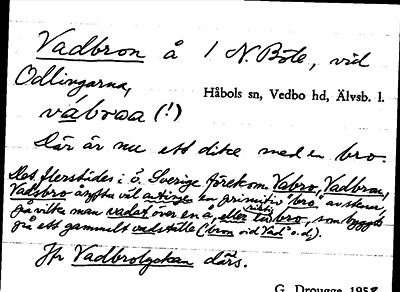 Vadbron å / N. Böle, vid
Odlingarna,
Håbols sn, Vedbo hd, Älvsb. l.
våbroa (!)
Där är nu ett dike med en bro.
Det flerstädes i ö. Sverige förekom. Vabro, Vadbron,
Vadsbro åsyfta väl antingen en primitiv "bro" av stenar,
på vilka man vadat över en å, eller bro, som byggts
på ett gammalt vadställe ("bron vid Vad" o. d.).
Jfr Vadbrolyckan därs.
G. Drougge 1958